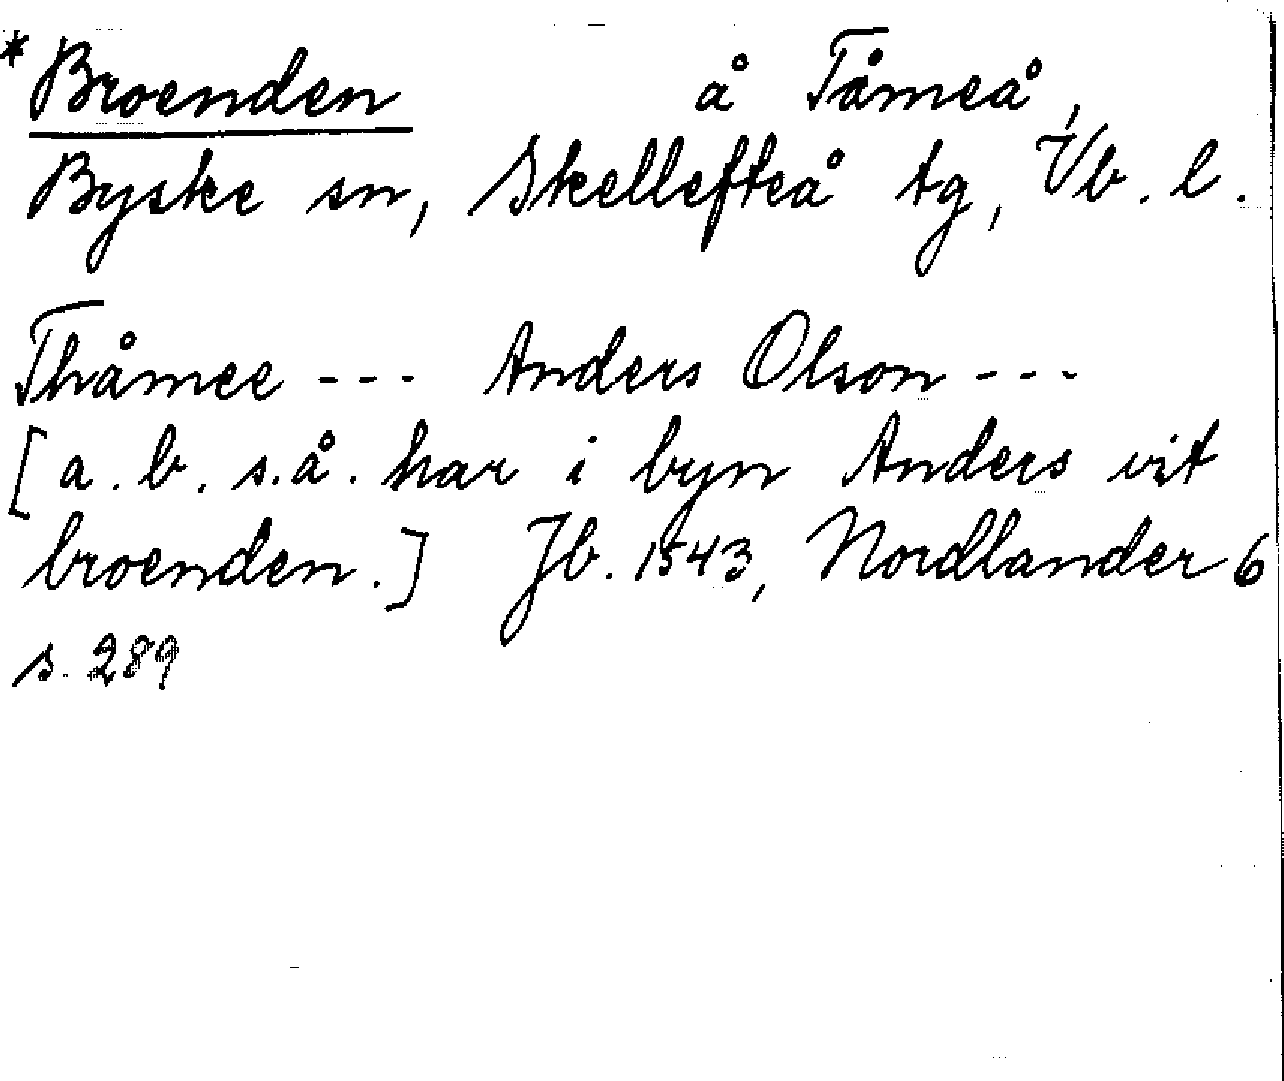 * Broenden å Tåmeå,
Byske sn, Skellefteå tg, Vb. l.
Thåmee --- Anders Olson ---
[a. b. s.å. har i byn Anders vit
broenden.] Jb. 1543, Nordlander 6
s. 289